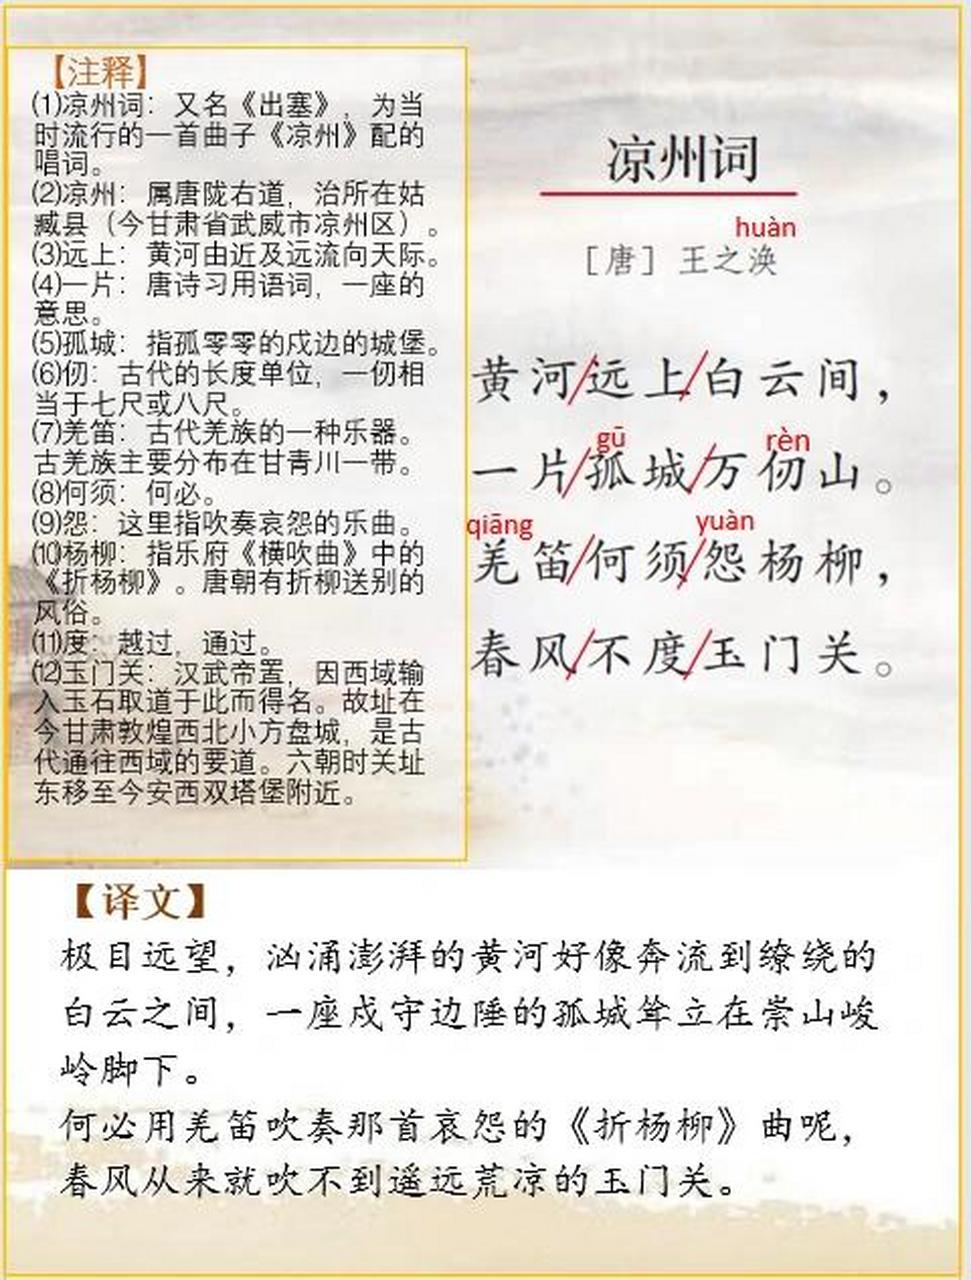 【注释】
⑴凉州词：又名《出塞》，为当
时流行的一首曲子《凉州》配的
唱词。
⑵凉州：属唐陇右道，治所在姑
臧县（今甘肃省武威市凉州区）。
⑶远上：黄河由近及远流向天际。
⑷一片：唐诗习用语词，一座的
意思。
⑸孤城：指孤零零的戍边的城堡。
⑹仞：古代的长度单位，一仞相
当于七尺或八尺。
⑺羌笛：古代羌族的一种乐器。
古羌族主要分布在甘青川一带。
⑻何须：何必。
⑼怨：这里指吹奏哀怨的乐曲。
⑽杨柳：指乐府《横吹曲》中的
《折杨柳》。唐朝有折柳送别的
风俗。
⑾度：越过，通过。
⑿玉门关：汉武帝置，因西域输
入玉石取道于此而得名。故址在
今甘肃敦煌西北小方盘城，是古
代通往西域的要道。六朝时关址
东移至今安西双塔堡附近。
凉州词
huàn
［唐］王之涣
黄河/远上/白云间，
gū rèn
一片/孤城/万仞山。
qiāng yuàn
羌笛/何须/怨杨柳，
春风/不度/玉门关。
【译文】
极目远望，汹涌澎湃的黄河好像奔流到缭绕的
白云之间，一座戍守边陲的孤城耸立在崇山峻
岭脚下。
何必用羌笛吹奏那首哀怨的《折杨柳》曲呢，
春风从来就吹不到遥远荒凉的玉门关。